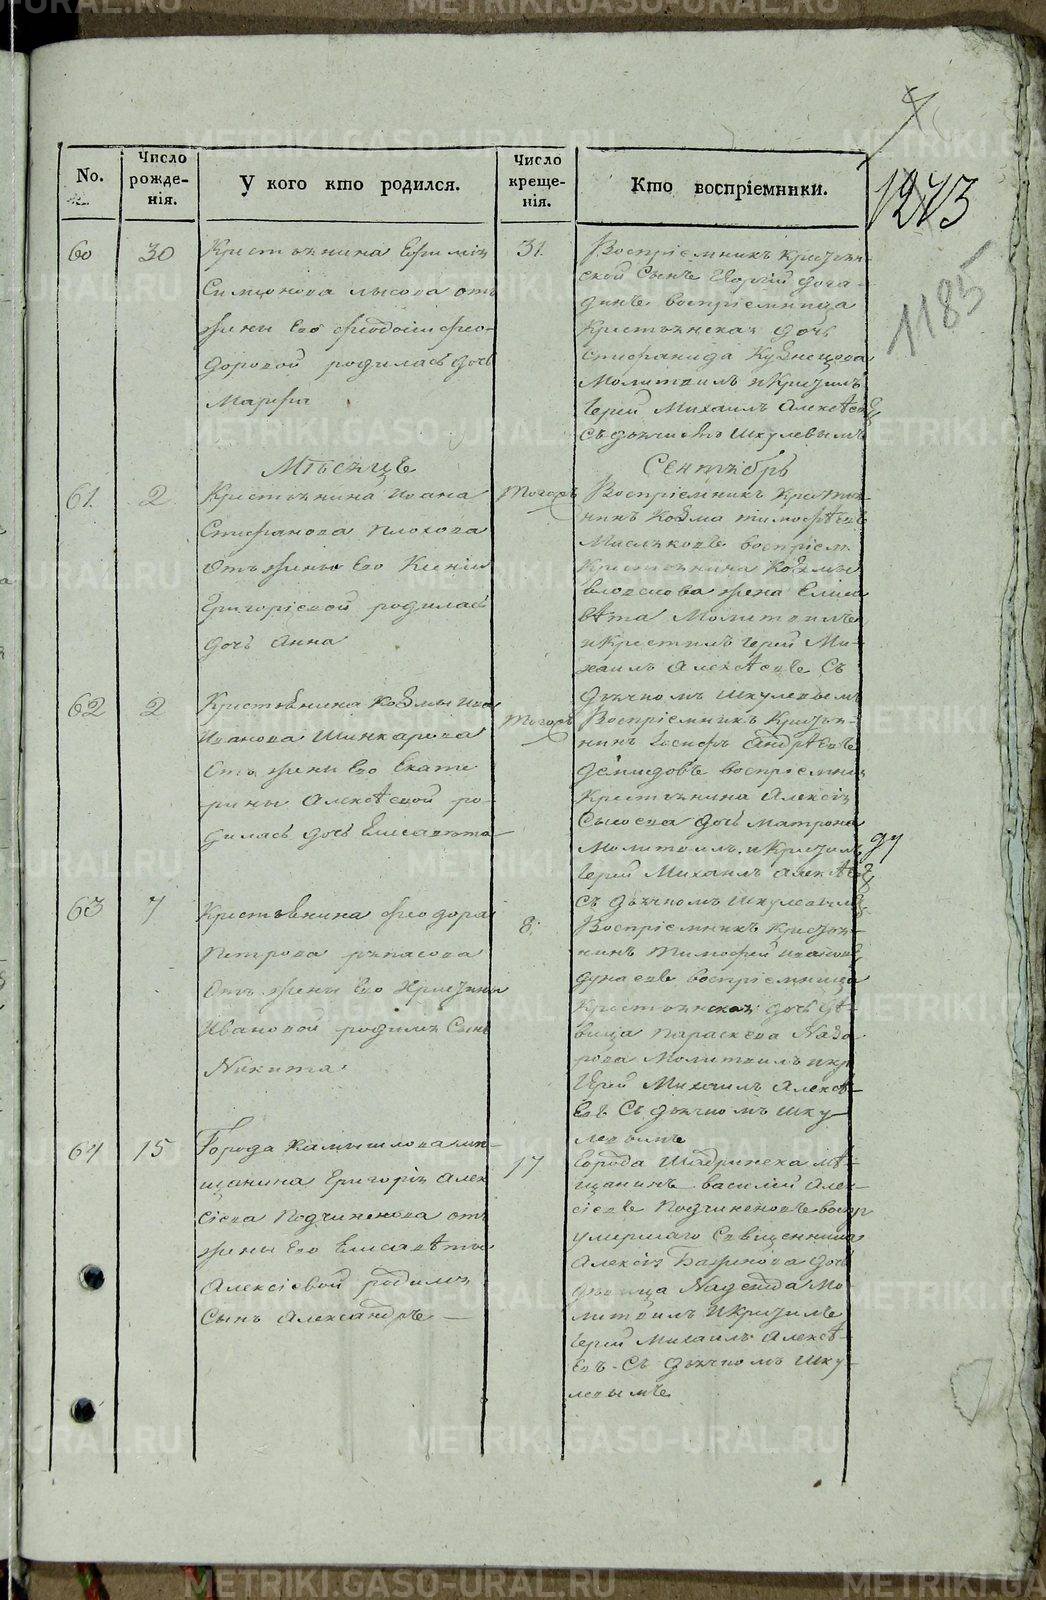 1273
1185
No.
Число рожде-нія.
У кого кто родился.
Число креще-нія.
Кто воспріемники.
60
30
Крестьянина Ефимія
Симионова лысова отъ
жены Его Феодосіи Фео-
доровой родилась дочь
Марфа
31.
Воспріемникъ Крестьян-
ской Сынъ Георгій
воспріемница
Крестьянская дочь
стефанида Кузнецова
Молитвилъ и Крестилъ
Іерей Михаилъ Алексѣев
Съ дьячкомъ Шкулевымъ
Мѣсяцъ
Сентябрь
61.
2
Крестьянина Іоана
Стефанова плохова
Отъ жены Его Ксеніи
Григоріевой родилась
дочь Анна
Тогожъ
Воспріемникъ Крестья-
нинъ Козма тимофѣевъ
воспріем.
Крестьянина Козмы
жена Елиса
вѣта Молитвилъ
и Крестилъ Іерей Ми-
хаилъ Алексѣевъ Съ
дьячкомъ Шкулевымъ
62
2
Крестьянина Козмы Ива
Иванова Шинкарева
Отъ жены Его Екате
рины Алексѣевой ро-
дилась дочь Елисавѣта
Тогожъ
Воспріемникъ Крестья-
нинъ Іосифъ Андрѣевъ
Демидовъ воспріемниц
Крестьянина Алексія
Сысоева дочь матрона
Молитвилъ и Крестилъ
Іерей Михаилъ Алексѣев
Съ дьячкомъ Шкулевымъ
63
7
Крестьянина Феодора
Петрова
Отъ жены Его Кристины
Ивановой родился Сынъ
Никита.
8.
Воспріемникъ Крестья-
нинъ Тимофей Иванов
дунаевъ воспріемница
Крестьянская дочь дѣ-
вица Параскева Наза
рова Молитвилъ и кр
Іерей Михаилъ Алексѣ-
Евъ Съ дьячкомъ Шку
левымъ
64
15
Города Камышлова мѣ-
щанина Григорія Алек
сіева Подчиненова отъ
жены Его Елисавѣты
Алексіевой родился
Сынъ Александръ —
17
Города Шадринска мѣ-
щанинъ василій Алек-
сіевъ Подчиненовъ воспр
умершаго Священника
Алексія Баженова дочь
дѣвица Надежда Мо-
литвилъ и Крестилъ
Іерей Михаилъ Алексѣ-
Евъ Съ дьячкомъ Шку-
левымъ
METRIKI.GASO-URAL.RU